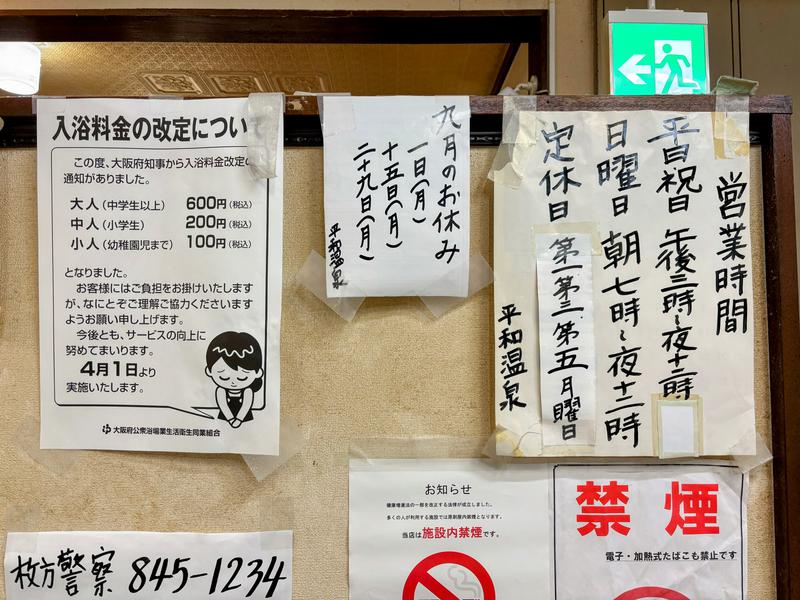 入浴料金の改定について
この度、大阪府知事から入浴料金改定の
通知がありました。
大人(中学生以上) 600円(税込)
中人(小学生) 200円(税込)
小人(幼稚園児まで) 100円(税込)
となりました。
お客様にはご負担をお掛けいたします
が、なにとぞご理解ご協力くださいます
ようお願い申し上げます。
今後とも、サービスの向上に
努めてまいります。
4月1日より
実施いたします。
大阪府公衆浴場業生活衛生同業組合
九月のお休み
一日(月)
十五日(月)
二十九日(月)
平和温泉
営業時間
平日祝日 午後三時~夜十二時
日曜日 朝七時~夜十二時
定休日 第一第三第五月曜日
平和温泉
枚方警察 845-1234
お知らせ
健康増進法の一部を改正する法律が成立しました。
多くの人が利用する施設では原則屋内禁煙となります。
当店は施設内禁煙です。
禁煙
電子・加熱式たばこも禁止です